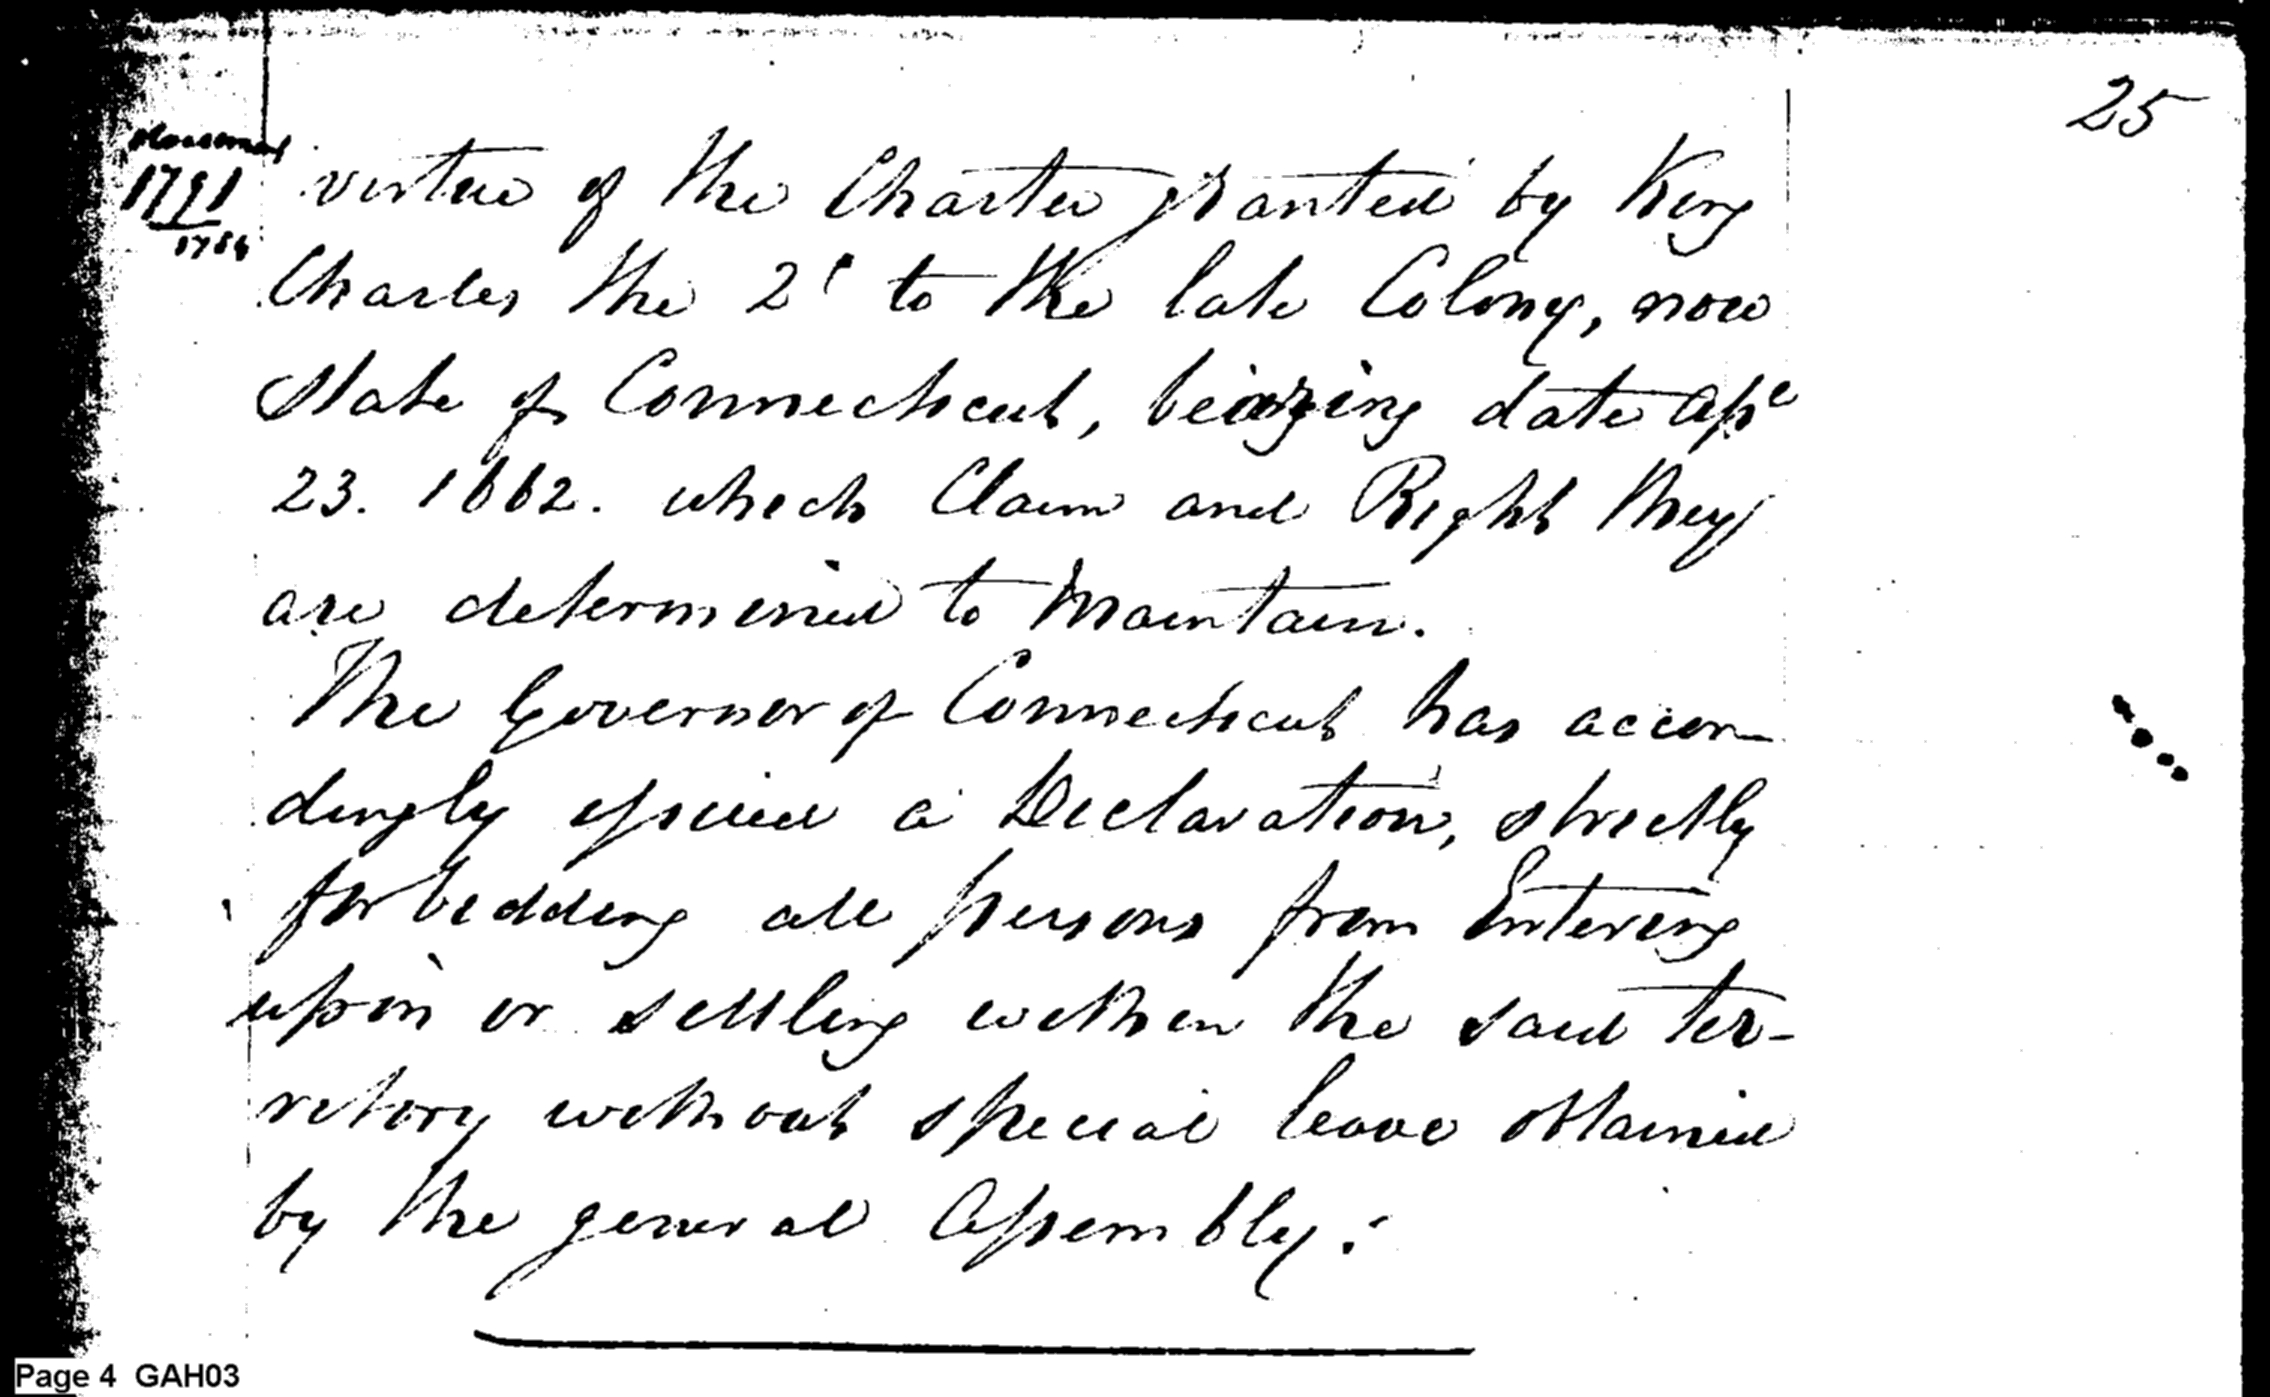 25
1791
1786
virtue of the Charter granted by King
Charles the 2d to the late Colony, now
State of Connecticut, bearing date Apl
23. 1662. which Claim and Right they
are determined to Maintain.
The Governor of Connecticut has accor-
dingly issued a Declaration, strictly
forbidding all persons from Entering
upon or settling within the said ter-
ritory without special leave obtained
by the general Assembly.
Page 4 GAH03